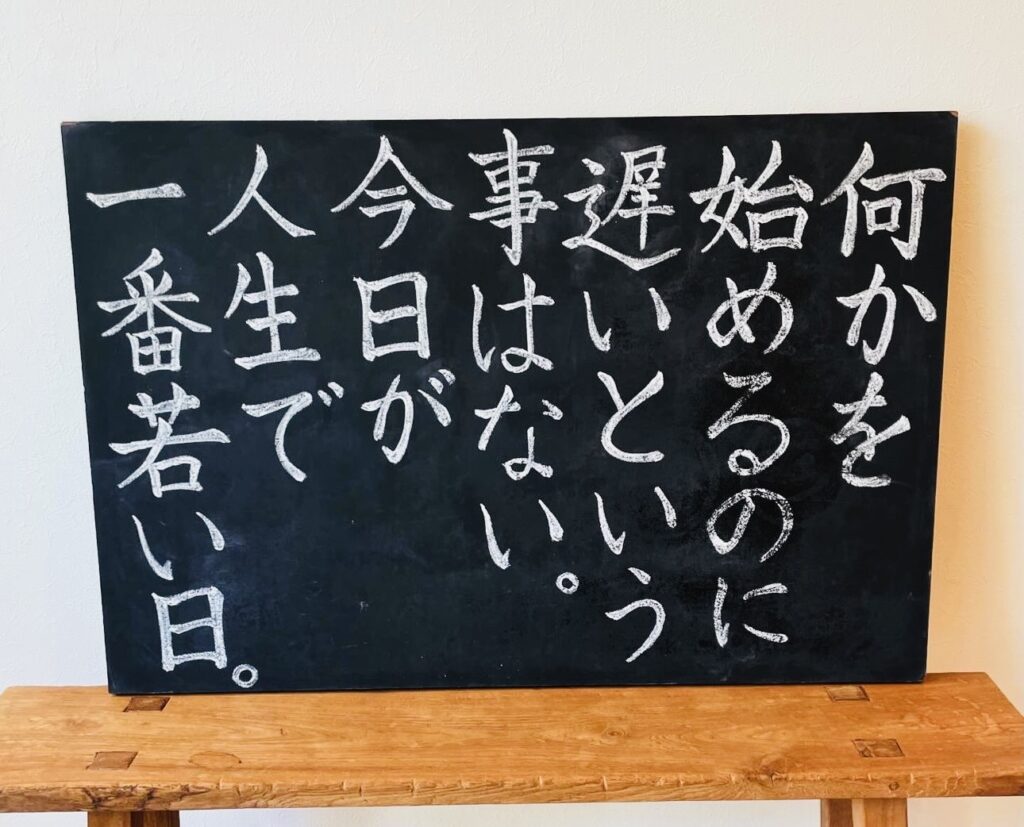 何かを
始めるのに
遅いという
事はない。
今日が
人生で
一番若い日。